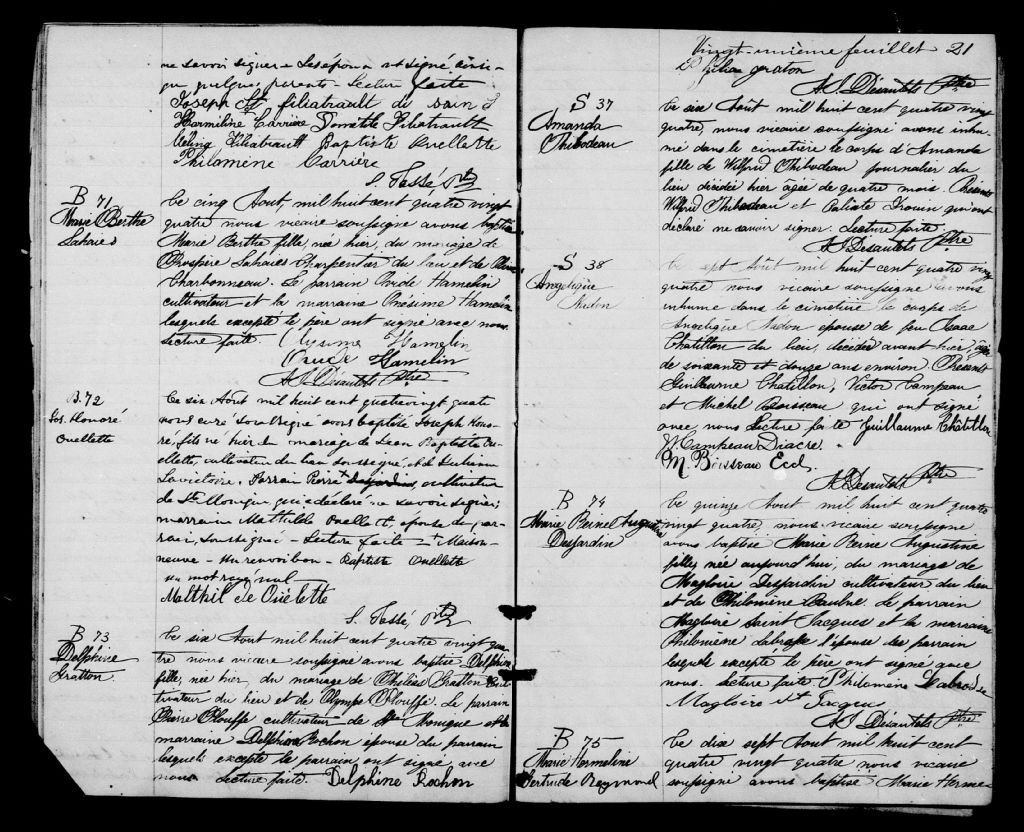 ne savoir signer. Les époux ont signé ainsi
que quelques parents. Lecture faite
Joseph filiatrault du
Hermiline Carrière Domitile Filiatrault
Filiatrault Baptiste Ouellette
Philomène Carrière
S. Tassé Ptre
B 71
Marie Berthe
Lahaies
Le cinq Aout, mil huit cent quatre vingt
quatre nous vicaire soussigné avons baptisé
Marie Berthe fille, née hier, du mariage de
Prospère Lahaies Charpentier du lieu et de
Charbonneau. Le parrain Hamelin
cultivateur et la marraine Onésime Hamelin
lesquels excepté le père ont signé avec nous.
Lecture faite. Hamelin
Hamelin
A J Désautels Ptre
B. 72
Jos. Honoré
Ouellette
Le six Aout mil huit cent quatrevingt quatre
nous curé soussigné avons baptisé Joseph Hono-
ré, fils né hier du mariage de Jean Baptiste Ou-
ellette, cultivateur du lieu soussigné et de
Lavictoire. Parrain Pierre Desjardins, cultivateur
de Ste Monique qui a déclaré ne savoir signer;
marraine Mathilde Ouellette, épouse du par-
rain, soussignée - Lecture faite - + Maison-
neuve - Un renvoi bon - Baptiste Ouellette
un mot rayé nul
Malthil de Ouélette
S. Tassé, Ptre
B 73
Delphine
Gratton.
Le six Aout mil huit cent quatre vingt qua-
tre nous vicaire soussigné avons baptisé Delphine
fille, née hier, du mariage de Philéas Gratton Cul-
tivateur du lieu et de Olympe Plouffe. Le parrain
Pierre Plouffe cultivateur de Ste Monique et la
marraine Delphine Rochon épouse du parrain
lesquels excepté le parrain ont signé avec
nous. Lecture faite Delphine Rochon
Vingt-unième feuillet 21
graton
A J. Désautels Ptre
S 37
Amanda
Thibodeau
Le six Aout mil huit cent quatre vingt
quatre, nous vicaire soussigné avons inhu-
mé dans le cimetière le corps d'Amanda
fille de Wilfrid Thibodeau journalier du
lieu décédée hier agée de quatre mois. Présents
Wilfrid Thibodeau et Calixte Drouin qui ont
déclaré ne savoir signer. Lecture faite.
A J Désautels Ptre
S 38
Angélique
Nadon
Le sept Aout mil huit cent quatre vingt
quatre nous vicaire soussigné avons
inhumé dans le cimetière le corps de
Angélique Nadon épouse de feu Isaac
Chatillon du lieu, décédée avant hier, agée
de soixante et douze ans environ. Présents
Guillaume Chatillon, Victor Campeau
et Michel Boisseau qui ont signé
avec nous Lecture faite Guillaume Châtillon
V Campeau Diacre
M. Boisseau Eccl.
A J. Désautels Ptre
B 74
Marie Reine Augustine
Desjardin
Le quinze Aout mil huit cent quatre
vingt quatre, nous vicaire soussigné
avons baptisé Marie Reine Augustine
fille, née aujourd'hui, du mariage de
Magloire Desjardin cultivateur du lieu
et de Philomène Paulne. Le parrain
Magloire Saint Jacques et la marraine
Philomène Labrosse l'épouse du parrain
lesquels excepté le père ont signé avec
nous. Lecture faite Philomène Labrosse
Magloire St Jacques
A J. Désautels Ptre
B 75
Marie Hermeline
Gertrude Raymond
Le dix sept Aout mil huit cent
quatre vingt quatre nous vicaire
soussigné avons baptisé Marie Herme-